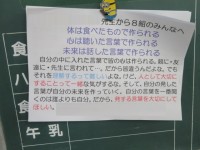 先生から8組のみんなへ
体は食べたもので作られる
心は聴いた言葉で作られる
未来は話した言葉で作られる
自分の中に入れた言葉で皆の心は作られる。親に・友
達に・先生に言われて…。だから皆違うんだよな。でも
それを
けど、人として大切に
することって一緒な気がするな。そして、自分の発した
言葉が自分の未来を作っていく。自分の言葉を一番聞
くのは誰よりも自分。だから、
発する言葉を大切にして
ほしい。
食
ハ
食
午 乳